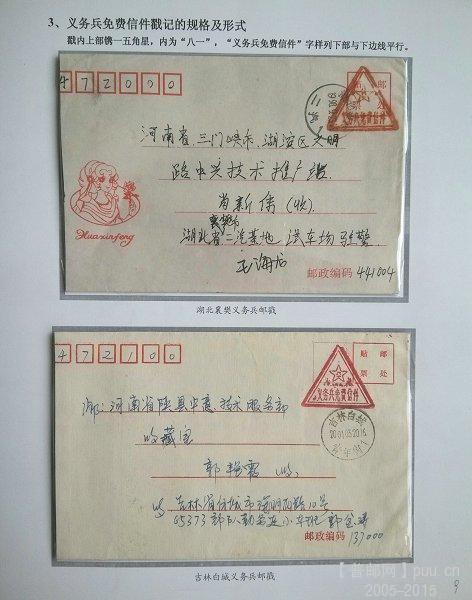 3、义务兵免费信件戳记的规格及形式
戳内上部镌一五角星，内为“八一”，“义务兵免费信件”字样列下部与下边线平行。
472000
贴 邮
票 处
义务兵免费信件
河南省三门峡市湖滨区文明
路中兴技术推广站
肖新伟（收）
Huaxinfeng
湖北省 二汽基地 汽车场
王海龙
邮政编码 441004
湖北襄樊义务兵邮戳
472100
贴 邮
票 处
义务兵免费信件
河南省陕县 技术服务部
吉林白城
收藏室
郭艳霞
吉林省白城市 10号
65373部队勤务连小车班
邮政编码 137000
吉林白城义务兵邮戳
【普邮网】puu.cn
2005-2015
9